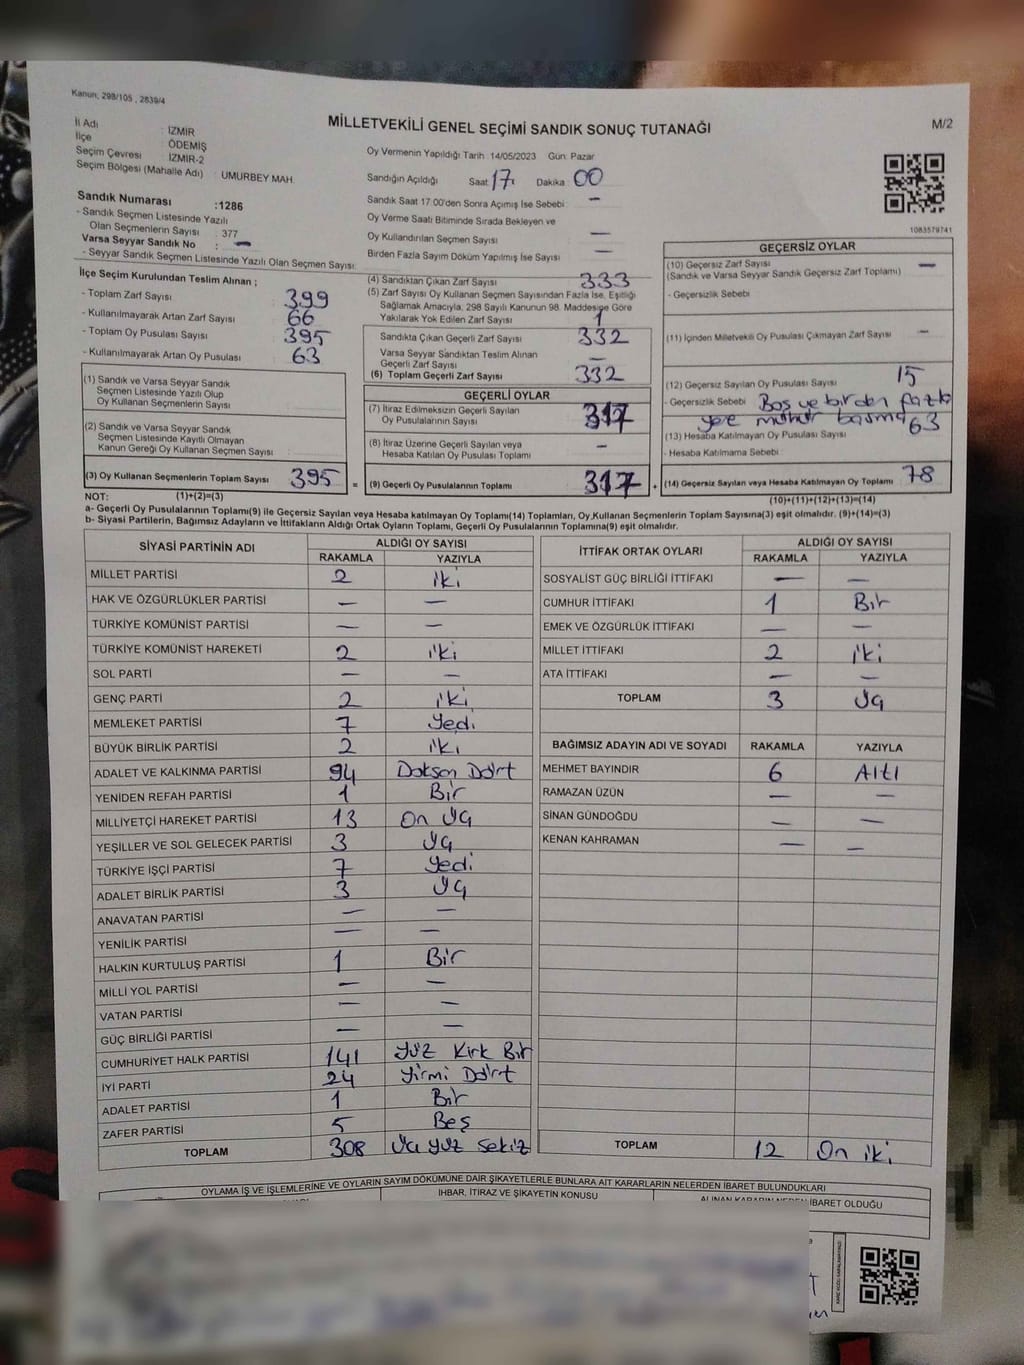 Kanun, 298/105 , 2839/4
MİLLETVEKİLİ GENEL SEÇİMİ SANDIK SONUÇ TUTANAĞI
M/2
İl Adı : İZMİR
İlçe : ÖDEMİŞ
Seçim Çevresi : İZMİR-2
Seçim Bölgesi (Mahalle Adı) : UMURBEY MAH.
Sandık Numarası :1286
- Sandık Seçmen Listesinde Yazılı
Olan Seçmenlerin Sayısı : 377
Varsa Seyyar Sandık No : —
- Seyyar Sandık Seçmen Listesinde Yazılı Olan Seçmen Sayısı:
Oy Vermenin Yapıldığı Tarih :14/05/2023 Gün: Pazar
Sandığın Açıldığı Saat: 17 Dakika: 00
Sandık Saat 17.00'den Sonra Açımış İse Sebebi —
Oy Verme Saati Bitiminde Sırada Bekleyen ve
Oy Kullandırılan Seçmen Sayısı —
Birden Fazla Sayım Döküm Yapılmış İse Sayısı —
1083579741
İlçe Seçim Kurulundan Teslim Alınan ;
- Toplam Zarf Sayısı 399
- Kullanılmayarak Artan Zarf Sayısı 66
- Toplam Oy Pusulası Sayısı 395
- Kullanılmayarak Artan Oy Pusulası 63
(1) Sandık ve Varsa Seyyar Sandık
Seçmen Listesinde Yazılı Olup
Oy Kullanan Seçmenlerin Sayısı
(2) Sandık ve Varsa Seyyar Sandık
Seçmen Listesinde Kayıtlı Olmayan
Kanun Gereği Oy Kullanan Seçmen Sayısı
(3) Oy Kullanan Seçmenlerin Toplam Sayısı 395
(4) Sandıktan Çıkan Zarf Sayısı 333
(5) Zarf Sayısı Oy Kullanan Seçmen Sayısından Fazla İse, Eşitliği
Sağlamak Amacıyla, 298 Sayılı Kanunun 98. Maddesine Göre
Yakılarak Yok Edilen Zarf Sayısı 1
Sandıkta Çıkan Geçerli Zarf Sayısı 332
Varsa Seyyar Sandıktan Teslim Alınan
Geçerli Zarf Sayısı —
(6) Toplam Geçerli Zarf Sayısı 332
GEÇERLİ OYLAR
(7) İtiraz Edilmeksizin Geçerli Sayılan
Oy Pusulalarının Sayısı 317
(8) İtiraz Üzerine Geçerli Sayılan veya
Hesaba Katılan Oy Pusulası Toplamı —
= (9) Geçerli Oy Pusulalarının Toplamı 317 +
GEÇERSİZ OYLAR
(10) Geçersiz Zarf Sayısı —
(Sandık ve Varsa Seyyar Sandık Geçersiz Zarf Toplamı)
- Geçersizlik Sebebi
(11) İçinden Milletvekili Oy Pusulası Çıkmayan Zarf Sayısı —
(12) Geçersiz Sayılan Oy Pusulası Sayısı 15
- Geçersizlik Sebebi Boş ve birden fazla
yere mühür basma
(13) Hesaba Katılmayan Oy Pusulası Sayısı 63
- Hesaba Katılmama Sebebi
(14) Geçersiz Sayılan veya Hesaba Katılmayan Oy Toplamı 78
NOT: (1)+(2)=(3)
(10)+(11)+(12)+(13)=(14)
a- Geçerli Oy Pusulalarının Toplamı(9) ile Geçersiz Sayılan veya Hesaba katılmayan Oy Toplamı(14) Toplamları, Oy Kullanan Seçmenlerin Toplam Sayısına(3) eşit olmalıdır. (9)+(14)=(3)
b- Siyasi Partilerin, Bağımsız Adayların ve İttifakların Aldığı Ortak Oyların Toplamı, Geçerli Oy Pusulalarının Toplamına(9) eşit olmalıdır.
SİYASİ PARTİNİN ADI ALDIĞI OY SAYISI
RAKAMLA YAZIYLA
MİLLET PARTİSİ 2 iki
HAK VE ÖZGÜRLÜKLER PARTİSİ — —
TÜRKİYE KOMÜNİST PARTİSİ — —
TÜRKİYE KOMÜNİST HAREKETİ 2 iki
SOL PARTİ — —
GENÇ PARTİ 2 iki
MEMLEKET PARTİSİ 7 Yedi
BÜYÜK BİRLİK PARTİSİ 2 iki
ADALET VE KALKINMA PARTİSİ 94 Doksan Dört
YENİDEN REFAH PARTİSİ 1 Bir
MİLLİYETÇİ HAREKET PARTİSİ 13 On Üç
YEŞİLLER VE SOL GELECEK PARTİSİ 3 Üç
TÜRKİYE İŞÇİ PARTİSİ 7 Yedi
ADALET BİRLİK PARTİSİ 3 Üç
ANAVATAN PARTİSİ — —
YENİLİK PARTİSİ — —
HALKIN KURTULUŞ PARTİSİ 1 Bir
MİLLİ YOL PARTİSİ — —
VATAN PARTİSİ — —
GÜÇ BİRLİĞİ PARTİSİ — —
CUMHURİYET HALK PARTİSİ 141 Yüz Kırk Bir
İYİ PARTİ 24 Yirmi Dört
ADALET PARTİSİ 1 Bir
ZAFER PARTİSİ 5 Beş
TOPLAM 308 Üç Yüz Sekiz
İTTİFAK ORTAK OYLARI ALDIĞI OY SAYISI
RAKAMLA YAZIYLA
SOSYALİST GÜÇ BİRLİĞİ İTTİFAKI — —
CUMHUR İTTİFAKI 1 Bir
EMEK VE ÖZGÜRLÜK İTTİFAKI — —
MİLLET İTTİFAKI 2 iki
ATA İTTİFAKI — —
TOPLAM 3 Üç
BAĞIMSIZ ADAYIN ADI VE SOYADI RAKAMLA YAZIYLA
MEHMET BAYINDIR 6 Altı
RAMAZAN ÜZÜN — —
SİNAN GÜNDOĞDU — —
KENAN KAHRAMAN — —
TOPLAM 12 On iki
OYLAMA İŞ VE İŞLEMLERİNE VE OYLARIN SAYIM DÖKÜMÜNE DAİR ŞİKAYETLERLE BUNLARA AİT KARARLARIN NELERDEN İBARET BULUNDUKLARI
İHBAR, İTİRAZ VE ŞİKAYETİN KONUSU
ALINAN KARARIN NEDEN İBARET OLDUĞU